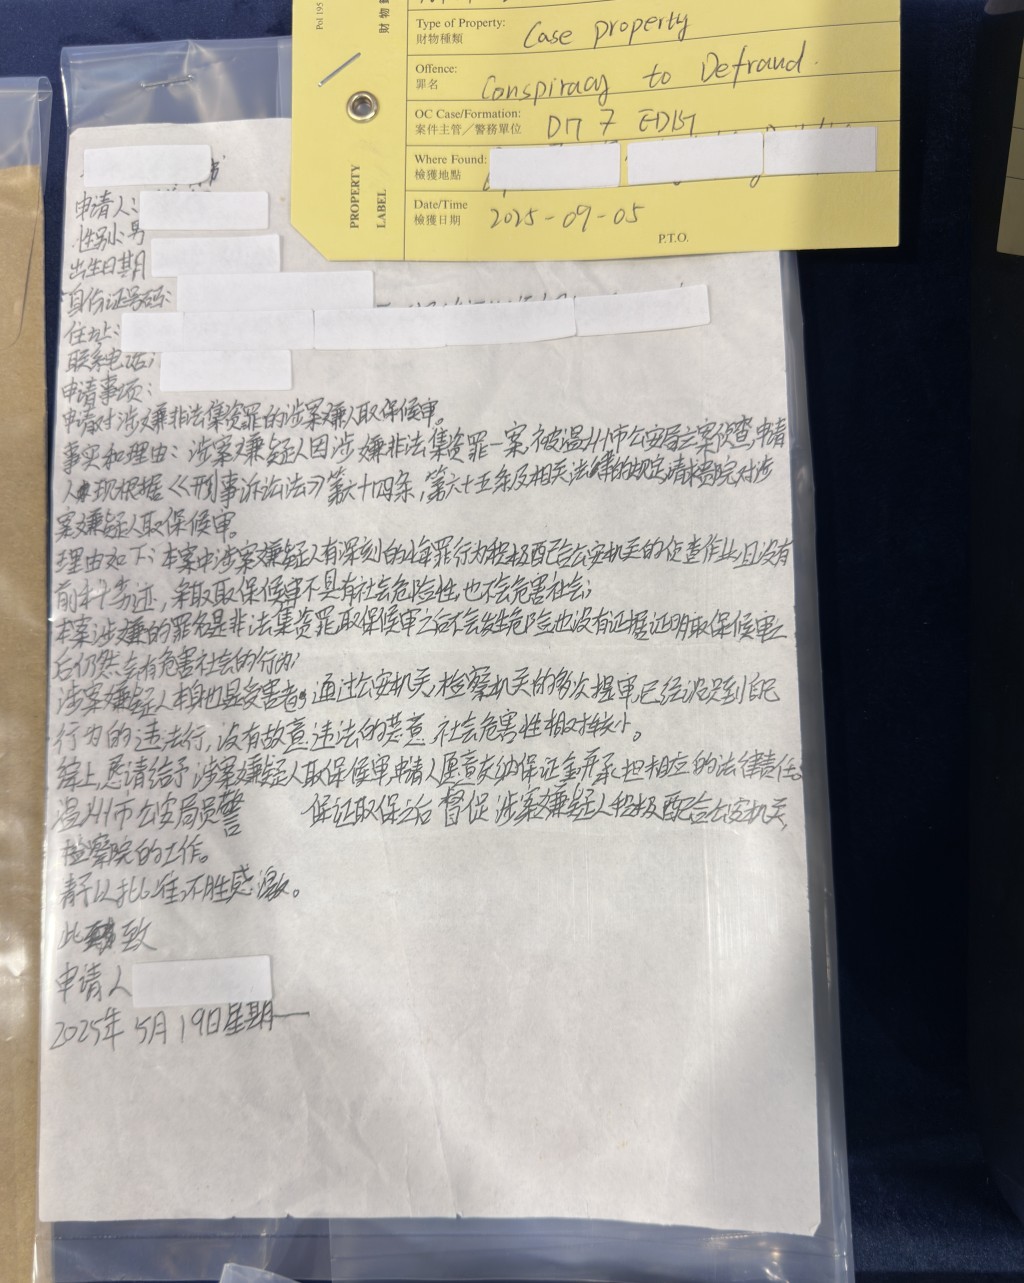 Pol 195
Type of Property:
財物種類
Case property
Offence:
罪名
Conspiracy to Defraud.
OC Case/Formation:
案件主管／警務單位
DIT 7 EDIST
Where Found:
檢獲地點
Date/Time
檢獲日期
2025-09-05
P.T.O.
PROPERTY
LABEL
申请人:
性别:男
出生日期
身份证号码:
住址:
联系电话:
申请事项:
申请对涉嫌非法集资罪的涉案嫌人取保候审。
事实和理由:涉案嫌疑人因涉嫌非法集资罪一案,被温州市公安局立案侦查,申请
人现根据《刑事诉讼法》第六十四条,第六十五条及相关法律的规定,请检院对涉
案嫌疑人取保候审。
理由如下:本案中涉案嫌疑人有深刻的悔罪行为积极配合公安机关的侦查作业,且没有
前科劣迹,采取取保候审不具有社会危险性,也不会危害社会;
本案涉嫌的罪名是非法集资罪,取保候审之后不会发生危险也没有证据证明取保候审之
后仍然会有危害社会的行为;
涉案嫌疑人本身也是受害者,通过公安机关,检察机关的多次提审,已经认识到自己
行为的违法行,没有故意违法的恶意,社会危害性相对较小。
综上,恳请给予涉案嫌疑人取保候审,申请人愿意交纳保证金并承担相应的法律责任。
温州市公安局员警 保证取保之后督促涉案嫌疑人积极配合公安机关,
检察院的工作。
请予以批准,不胜感激。
此致
申请人
2025年5月19日星期一